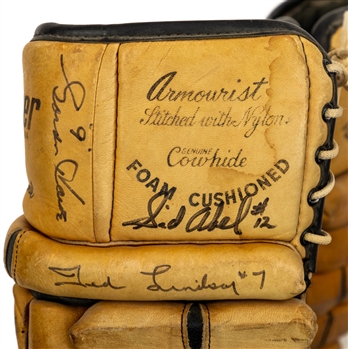 Armourist
Stitched with Nylon
GENUINE
Cowhide
FOAM CUSHIONED
Sid Abel #12
Ted Lindsay #7
Gordie Howe
9